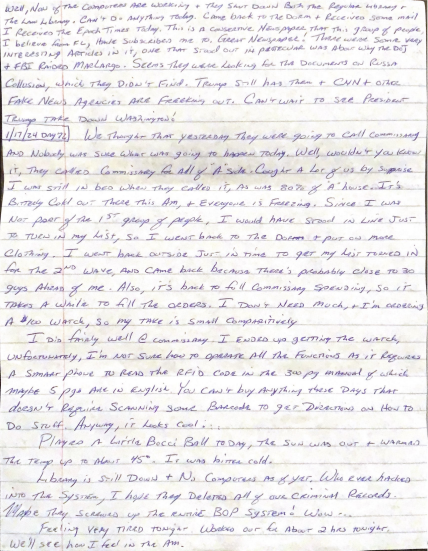 Well, Non of the Computers are working & They Shut Down Both the Regular Library &
The Law Library. Can't Do Anything today. Came back to the Dorm & Received some mail
I Received the Epoch Times Today. This is a conservative Newspaper that this group of people,
I believe from FL, Have Subscribed me to. Great Newspaper! There were Some very
Interesting Articles in it, one that stood out in particular was About why the DOJ
+ FBI Raided MarLargo. Seems They were Looking for the Documents on Russia
Collusion, which They Didn't Find. Trump still Has them & CNN & other
Fake News Agencies Are Freeking out. Can't wait to see President
Trump Take Down Washington!
1/17/24 Day 72 We thought that yesterday they were going to call commissary
And Nobody was sure what was going to happen today. Well, wouldn't you know
it, They called commissary for All of "A" side. Caught A Lot of us by suprise
I was still in bed when they called it, as was 80% of A' house. It's
Bitterly Cold out There this Am, & Everyone is Freezing. Since I was
Not part of the 1st group of people, I would have stood in Line Just
To turn in my List, so I went back to the Dorm & put on more
Clothing. I went back outside Just in time to get my List turned in
for the 2nd Wave, and came back Because There's probably close to 30
guys Ahead of me. Also, it's back to full Commissary Spending, so it
takes A while to fill the orders. I Don't Need much, & I'm ordering
A $100 watch, so my take is small Comparitively
I Did finely well @ commissary. I ended up getting the watch,
unfortunately, I'm not sure how to operate All the Functions as it Requires
A smart phone to Read the RFID code in the 300 pg manual of which
maybe 5 pgs Are in English. You can't buy Anything these Days that
doesn't Require Scanning some Barcode to get Directions on How to
Do stuff. Anyway, it Looks cool...
Played A Little Bocci Ball today, the sun was out & warmed
The Temp up to About 45°. It was bitter cold.
Library is still Down & No Computers as of yet. Who ever hacked
into the System, I hope They Deleted All of our Criminal Records.
Maybe they Screwed up the entire BOP System! Wow...
Feeling very tired tonight. Worked out for About 2 hrs tonight.
We'll see how I feel in the Am.